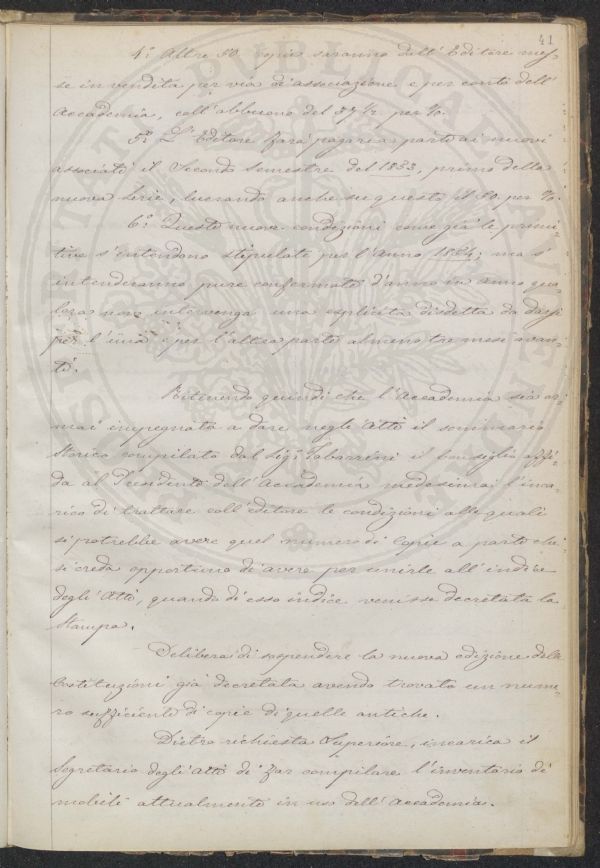 41
4.° Altre 50 copie saranno dall'Editore mes-
se in vendita per via di associazione e per conto dell'
Accademia, coll'abbuono del 37 ½ per %.
5.° L'Editore farà pagare a parte ai nuovi
associati il Secondo Semestre del 1853, primo della
nuova Serie, lucrando anche su questo il 50 per %.
6.° Queste nuove condizioni come già le primi-
tive s'intendono stipulate per l'anno 1854; ma s'
intenderanno pure confermate d'anno in anno qua-
lora non intervenga una esplicita disdetta da darsi
per l'una e per l'altra parte almeno tre mesi avan-
ti.
Ritenendo quindi che l'Accademia sia or-
mai impegnata a dare negli Atti il sommario
Storico compilato dal Sig.r Tabarrini il Consiglio affi-
da al Presidente dell'Accademia medesima l'inca-
rico di trattare coll'editore le condizioni alle quali
si potrebbe avere quel numero di Copie a parte che
si creda opportuno di avere per unirle all'indice
degli Atti, quando di esso indice venisse decretata la
Stampa.
Delibera di sospendere la nuova edizione delle
Costituzioni già decretata avendo trovato un nume-
ro sufficiente di copie di quelle antiche.
Dietro richiesta Superiore, incarica il
Segretario degli Atti di far compilare l'inventario dei
mobili attualmente in uso dell'Accademia.